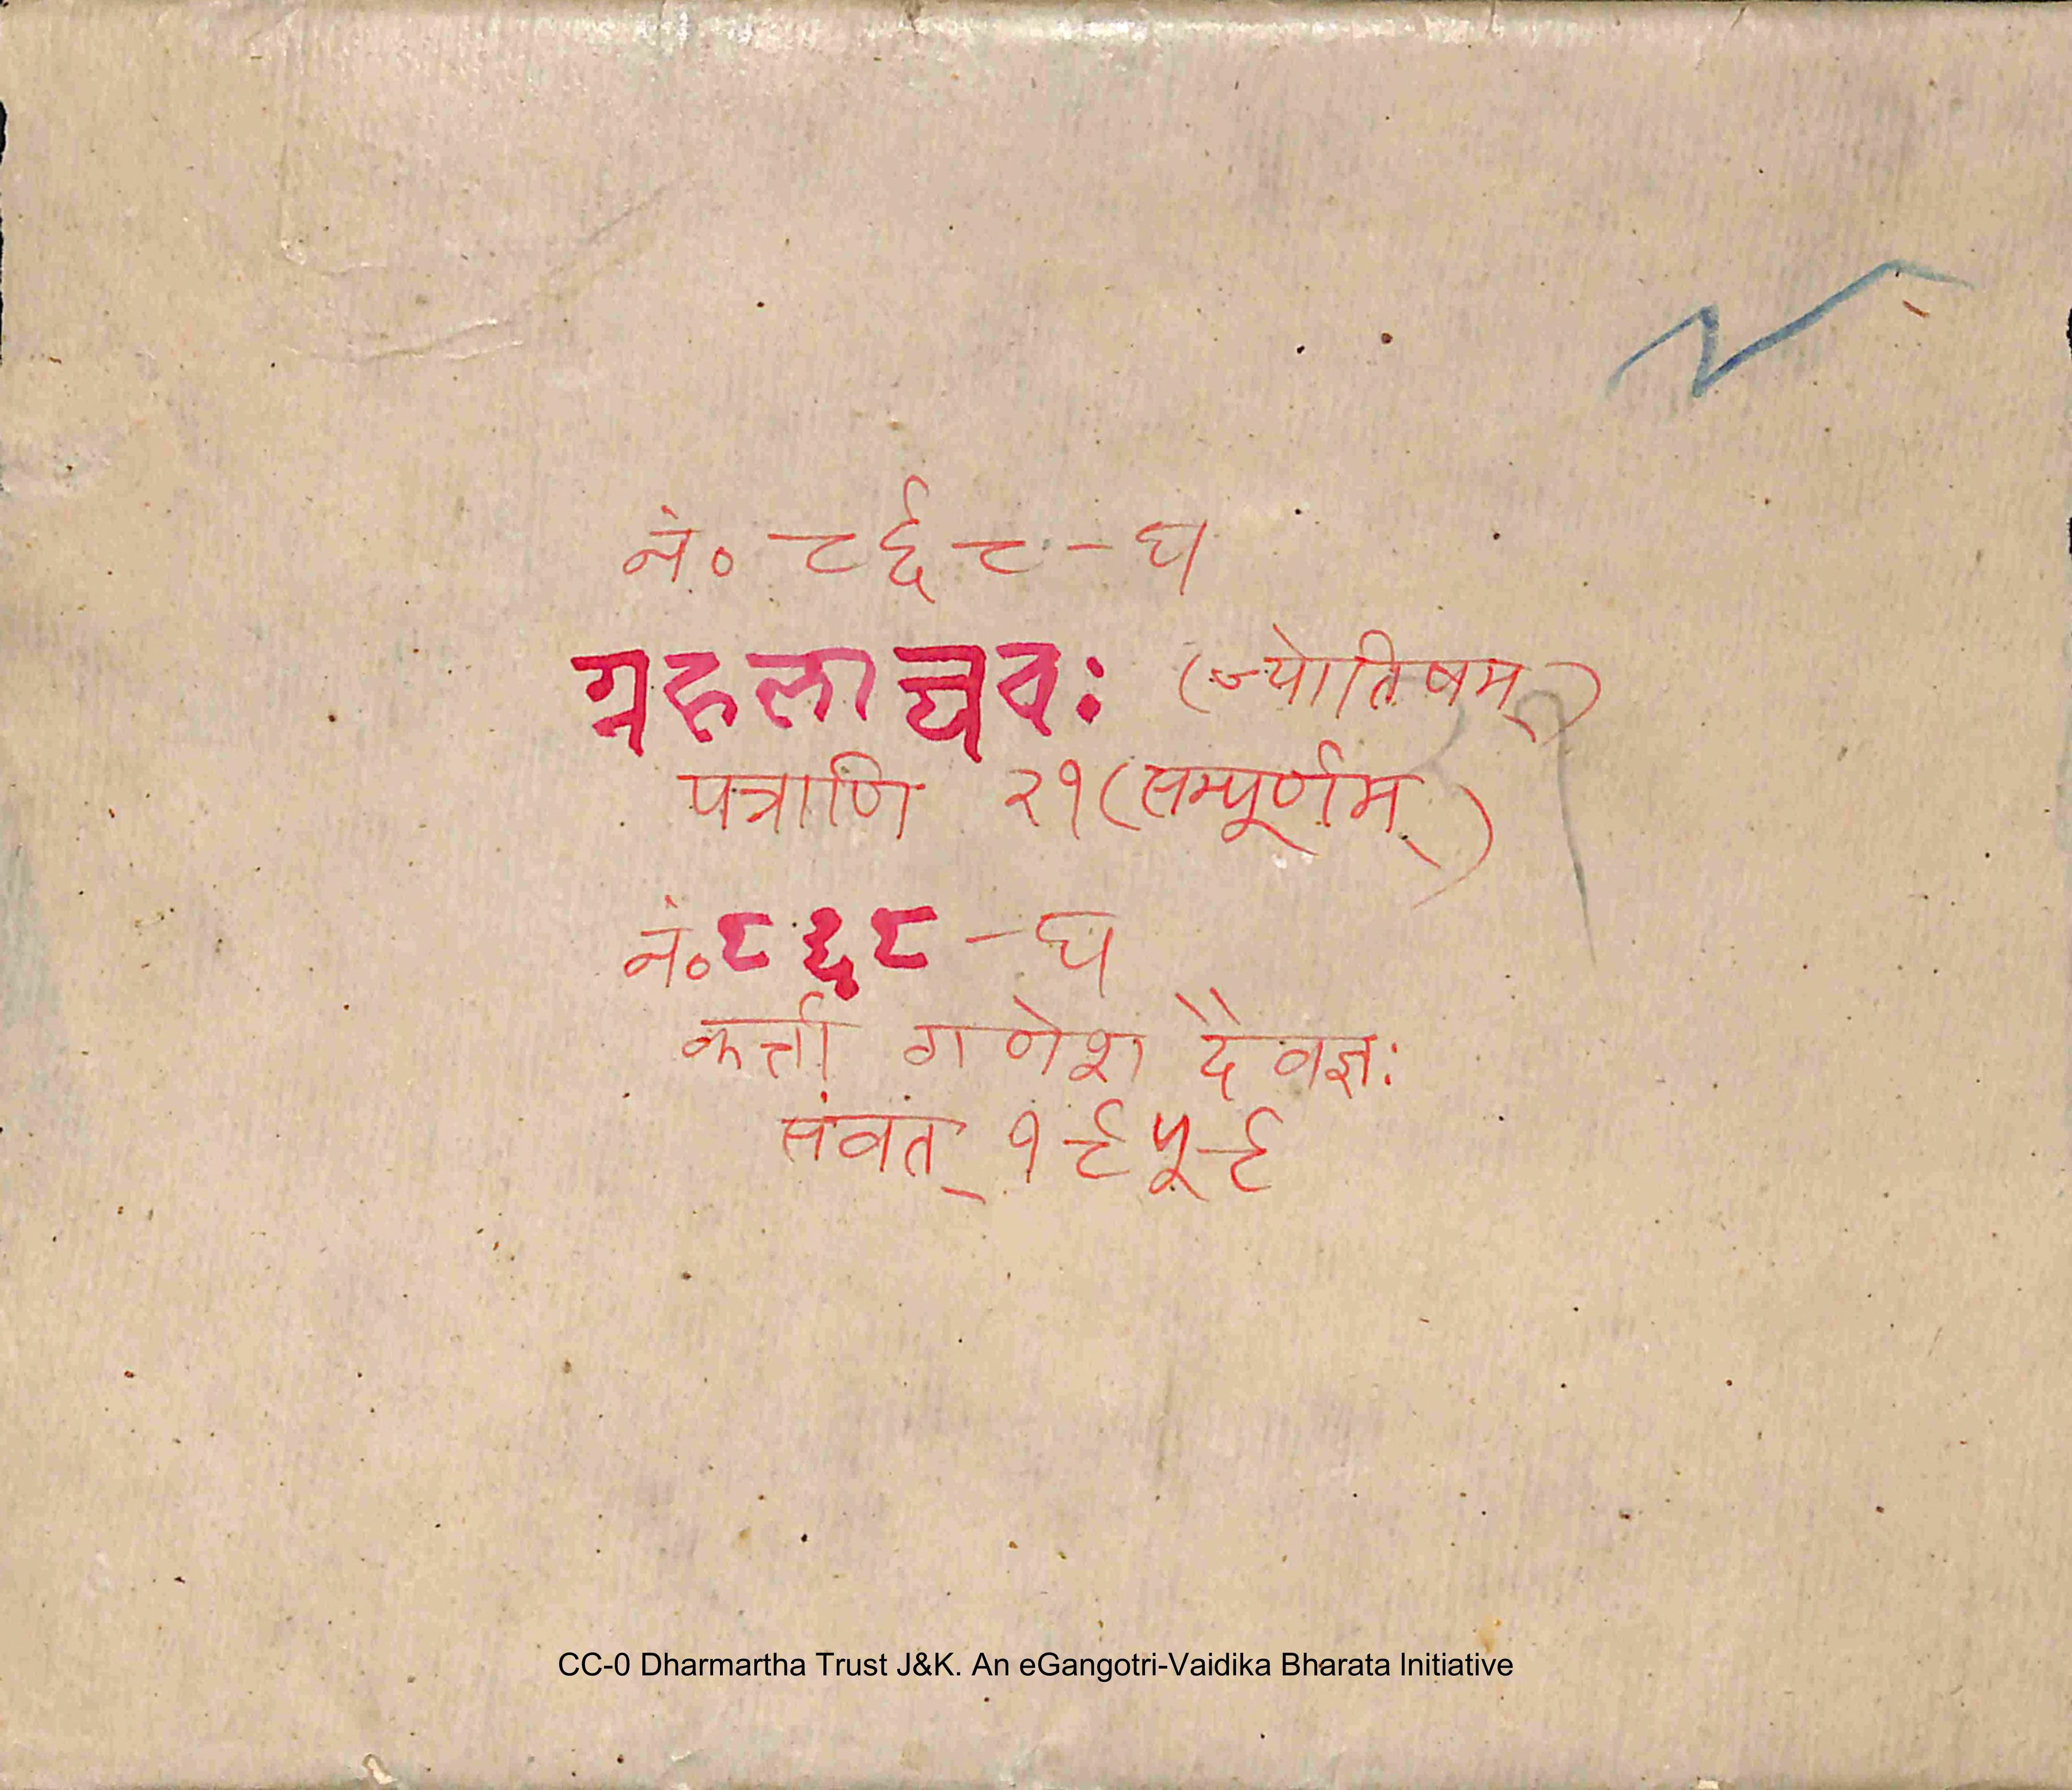 नं० ८६८-घ
ग्रहलाघवः (ज्योतिषम्)
पत्राणि २१ (सम्पूर्णम्)
नं० ८६८-घ
कर्त्ता गणेश दैवज्ञः
संवत् १९५९
CC-0 Dharmartha Trust J&K. An eGangotri-Vaidika Bharata Initiative